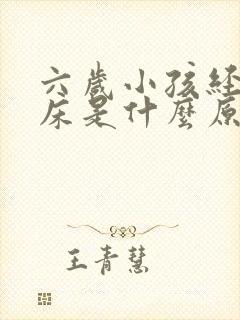 六歲小孩経
床是什麼原
王青慧